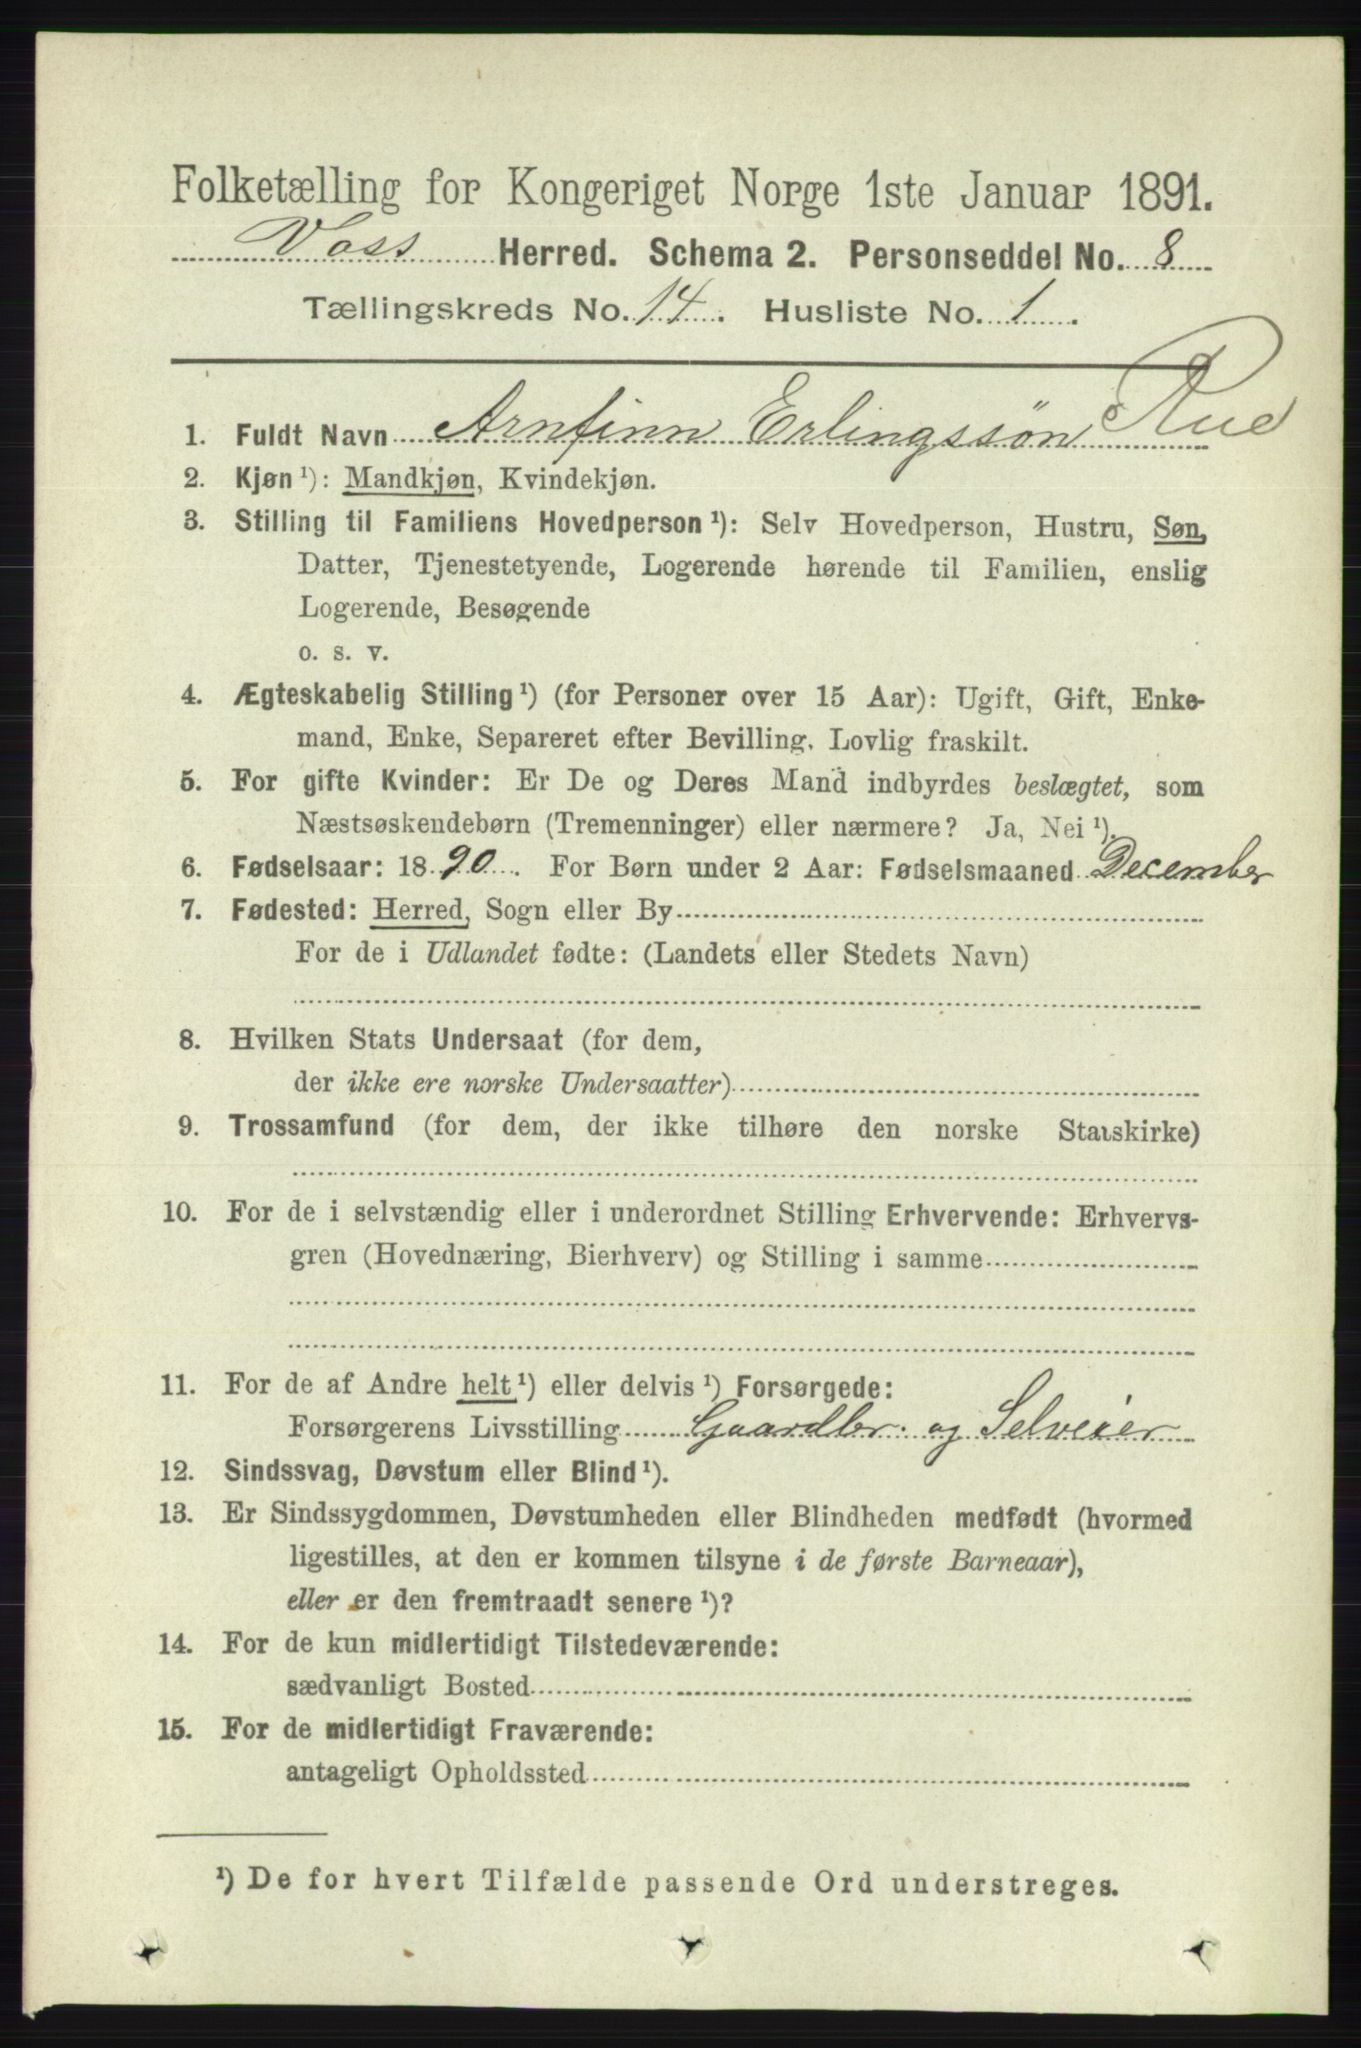 Folketælling for Kongeriget Norge 1ste Januar 1891.
Voss Herred. Schema 2. Personseddel No. 8
Tællingskreds No. 14. Husliste No. 1.
1. Fuldt Navn Arnfinn Erlingssøn Rue
2. Kjøn ¹): Mandkjøn, Kvindekjøn.
3. Stilling til Familiens Hovedperson ¹): Selv Hovedperson, Hustru, Søn,
Datter, Tjenestetyende, Logerende hørende til Familien, enslig
Logerende, Besøgende
o. s. v.
4. Ægteskabelig Stilling ¹) (for Personer over 15 Aar): Ugift, Gift, Enke-
mand, Enke, Separeret efter Bevilling, Lovlig fraskilt.
5. For gifte Kvinder: Er De og Deres Mand indbyrdes beslægtet, som
Næstsøskendebørn (Tremenninger) eller nærmere? Ja, Nei ¹).
6. Fødselsaar: 1890. For Børn under 2 Aar: Fødselsmaaned December
7. Fødested: Herred, Sogn eller By
For de i Udlandet fødte: (Landets eller Stedets Navn)
8. Hvilken Stats Undersaat (for dem,
der ikke ere norske Undersaatter)
9. Trossamfund (for dem, der ikke tilhøre den norske Statskirke)
10. For de i selvstændig eller i underordnet Stilling Erhvervende: Erhvervs-
gren (Hovednæring, Bierhverv) og Stilling i samme
11. For de af Andre helt ¹) eller delvis ¹) Forsørgede:
Forsørgerens Livsstilling Gaardbr. og Selveier
12. Sindssvag, Døvstum eller Blind ¹).
13. Er Sindssygdommen, Døvstumheden eller Blindheden medfødt (hvormed
ligestilles, at den er kommen tilsyne i de første Barneaar),
eller er den fremtraadt senere ¹)?
14. For de kun midlertidigt Tilstedeværende:
sædvanligt Bosted
15. For de midlertidigt Fraværende:
antageligt Opholdssted
¹) De for hvert Tilfælde passende Ord understreges.